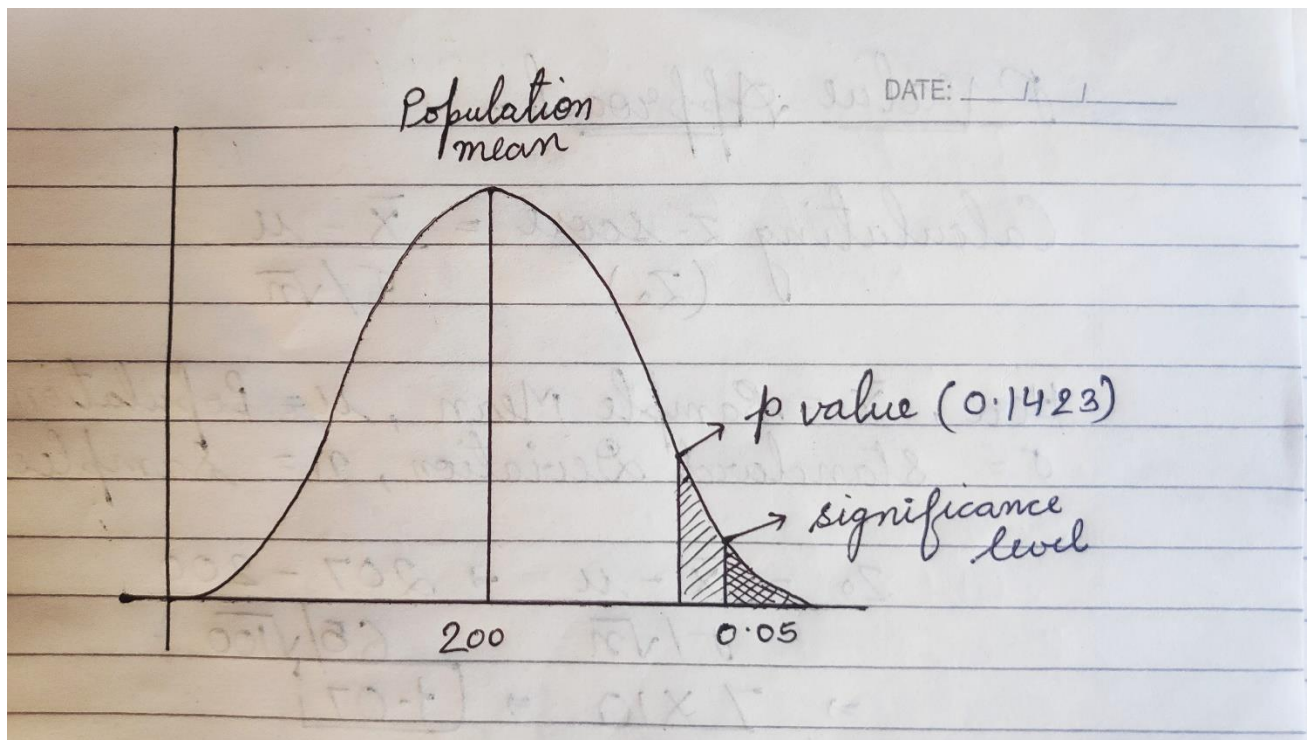 DATE:
Population
mean
p value (0.1423)
significance
level
200
0.05